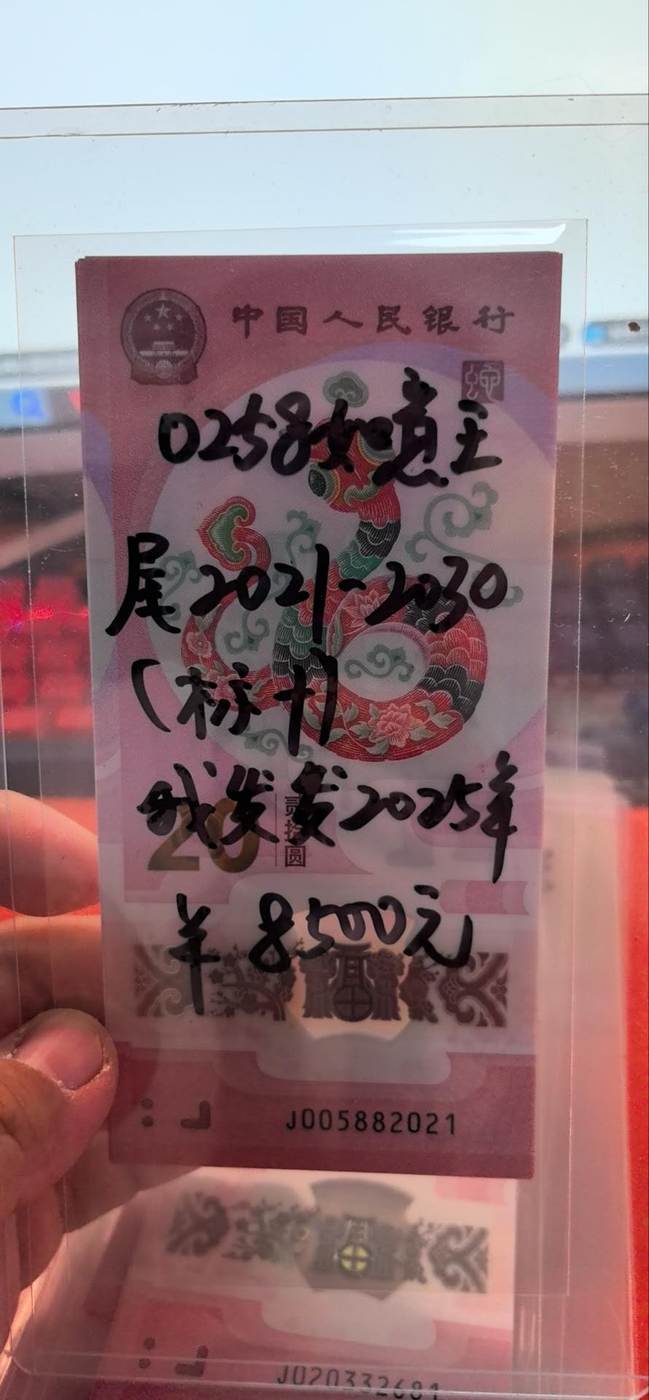 中国人民银行
0258如意王
尾2021-2030
(标十)
我发发2025年
20
贰拾圆
￥8500元
J005882021
J020332681